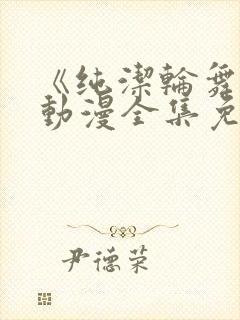 《纯潔輪舞
動漫全集免
尹德荣